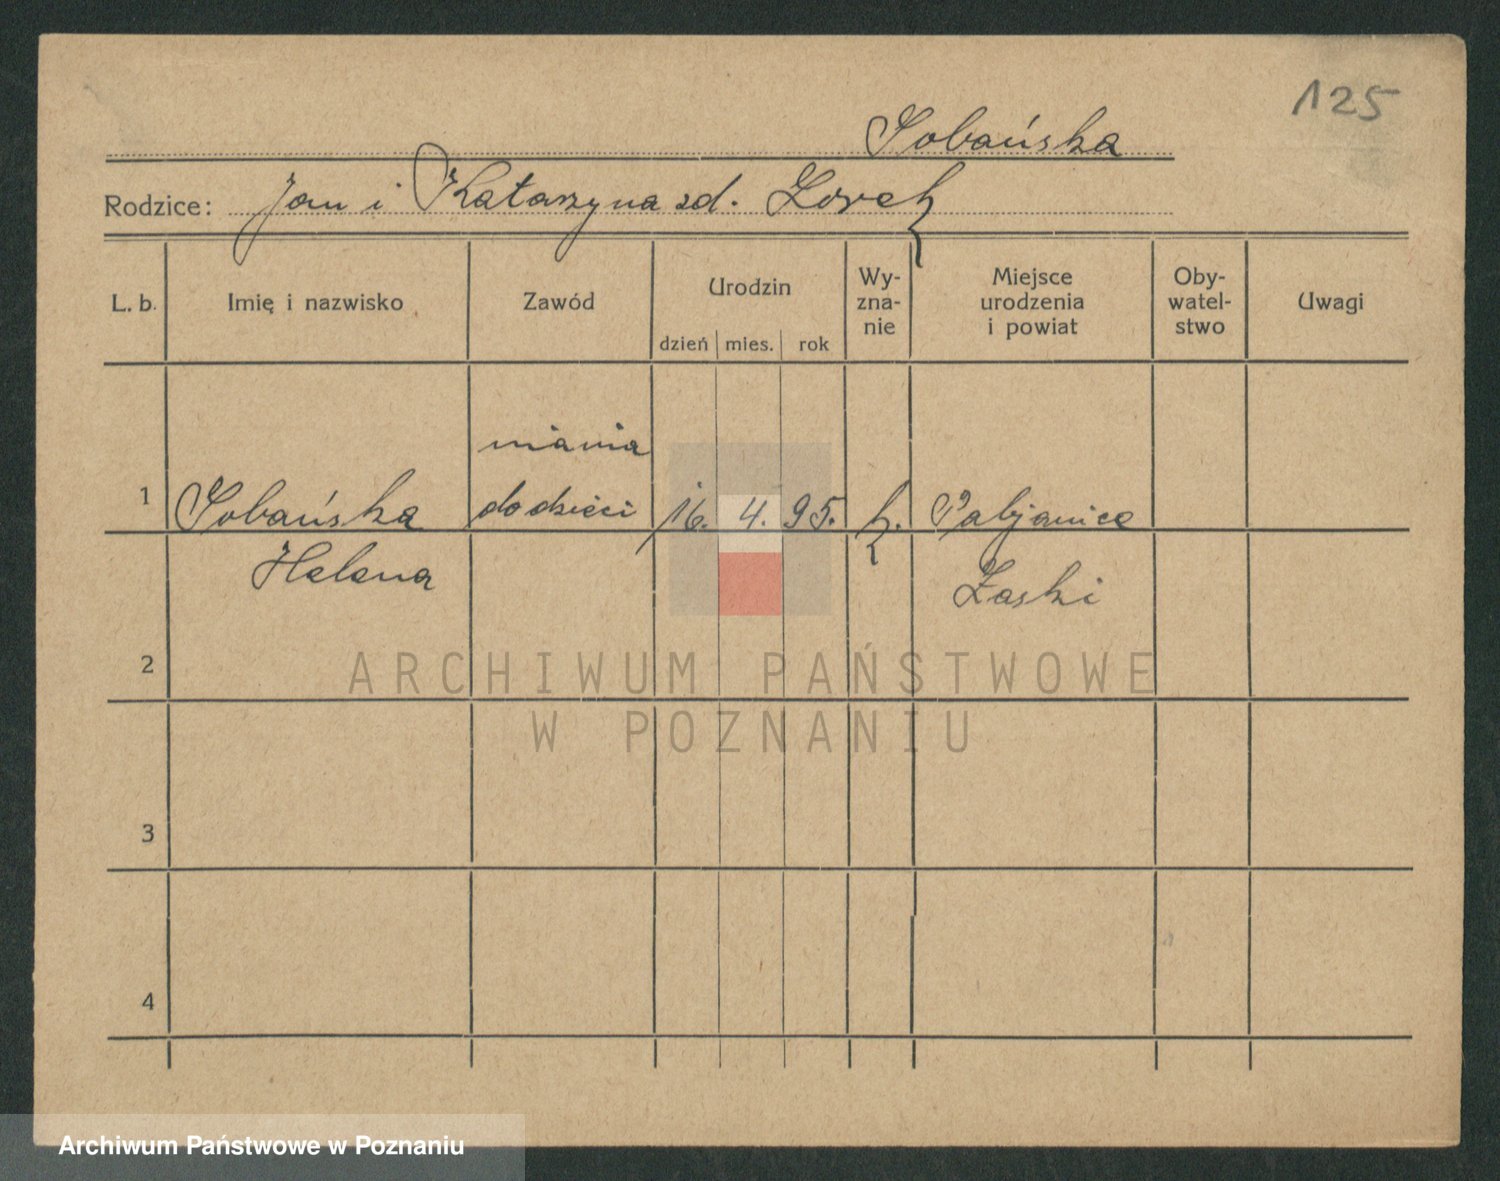 125
Sobańska
Rodzice: Jan i Katarzyna zd. Lorek
L. b. Imię i nazwisko Zawód Urodzin dzień mies. rok Wy-zna-nie Miejsce urodzenia i powiat Oby-watel-stwo Uwagi
niania
1 Sobańska do dzieci 16. 4. 95. k. Pabjanice
Helena Łaski
2
ARCHIWUM PAŃSTWOWE
W POZNANIU
3
4
Archiwum Państwowe w Poznaniu